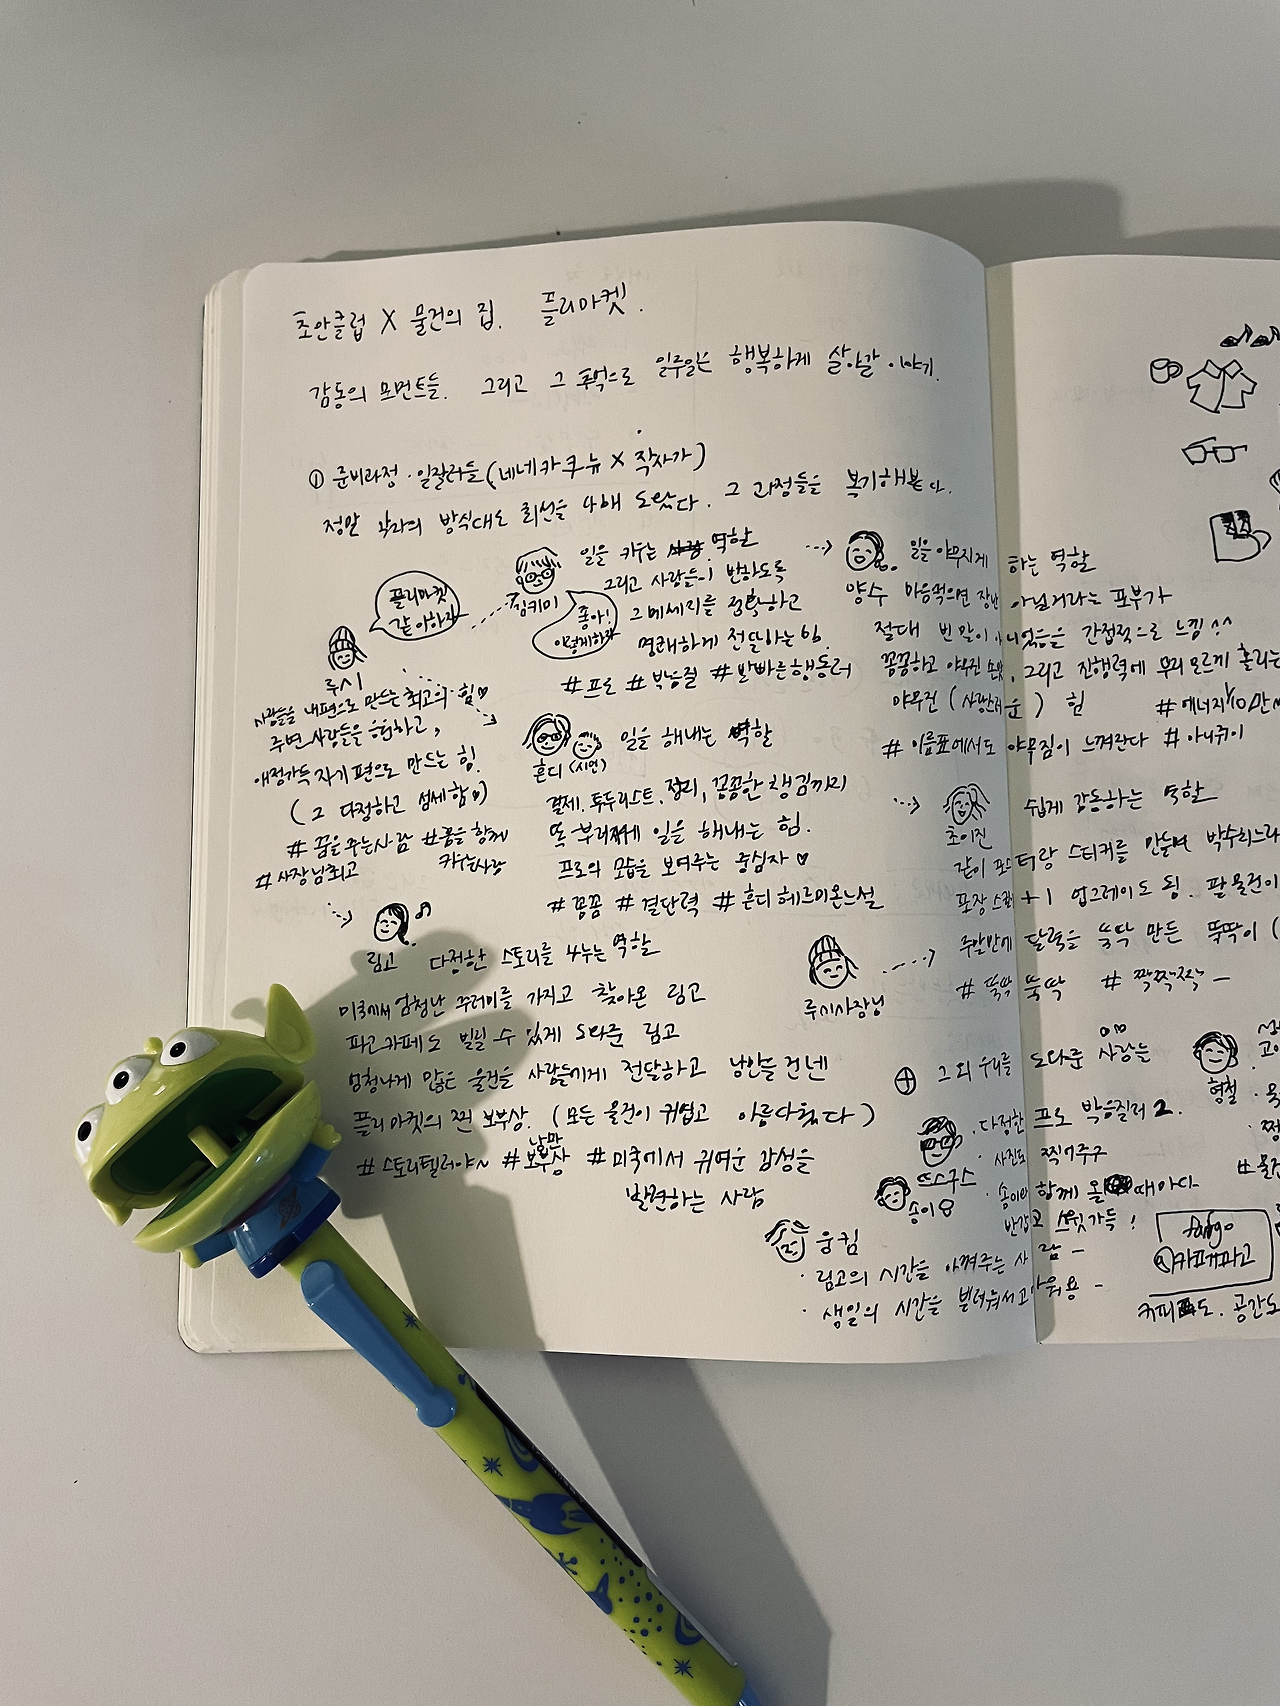 초안클럽 X 물건의 집. 플리마켓.
감동의 모먼트들. 그리고 그 추억으로 일주일은 행복하게 살아갈 이야기.
① 준비과정 · 일잘러들 (네네카쿠뉴 X 작사가)
정말 각자의 방식대로 최선을 다해 도왔다. 그 과정들을 복기해본다.
플리마켓
같이하자
루시
사람들을 내편으로 만드는 최고의 힘
주변 사람들을 응원하고,
애정가득 자기편으로 만드는 힘.
(그 다정하고 섬세함♡)
#꿈을 꾸는 사람 #꿈을 함께
키우는 사람
#사장님최고
김키미
좋아!
이렇게하자
일을 키우는 역할
그리고 사람들이 반하도록
그 메세지를 정확하고
명쾌하게 전달하는 힘.
#프로 #박능률 #발빠른행동러
흔디 (시언)
일을 해내는 역할
결제. 투두리스트. 정리, 꼼꼼한 챙김까지
똑-부러지게 일을 해내는 힘.
프로의 모습을 보여주는 중심자 ♡
#꼼꼼 #결단력 #흔디헤르미온느설
림고
다정한 스토리를 나누는 역할
미국에서 엄청난 꾸러미를 가지고 찾아온 림고
파고카페도 빌릴 수 있게 도와준 림고
엄청나게 많은 물건을 사람들에게 전달하고 낭만을 건넨
플리마켓의 찐 보부상. (모든 물건이 귀엽고 아름다웠다)
#스토리텔러야~ #낭만보부상 #미국에서 귀여운 감성을
발견하는 사람
일을 야무지게 하는 역할
양수 마음먹으면 장난 아닐거라는 포부가
절대 빈말이 아니었음을 간접적으로 느낌^^
꼼꼼하고 야무진 손맛. 그리고 진행력에 무리 모르게 홀리는
야무진 (사랑스러운) 힘 #에너지100만
#이름표에서도 야무짐이 느껴왔다 #아니쥐이
초이진
쉽게 감동하는 역할
같이 포스터랑 스티커를 만들며 박수치느라
포장스킬 +1 업그레이드 됨. 팔 물건이
주말반에 달력을 뚝딱 만든 뚝딱이 (
#뚝딱뚝딱 #짝짝짝 -
루시사장님
⊕ 그 외 우리를 도와준 사람들
뜨스구스
· 다정한 프로 박음질러 2.
· 사진도 찍어주구
송이
· 송이와 함께 올 때마다
반갑고 스윗가득!
웅킴
· 림고의 시간을 아껴주는 사람 -
· 생일의 시간을 빌려줘서 고마워용 -
형철
fargo
카페파고
커피도. 공간도